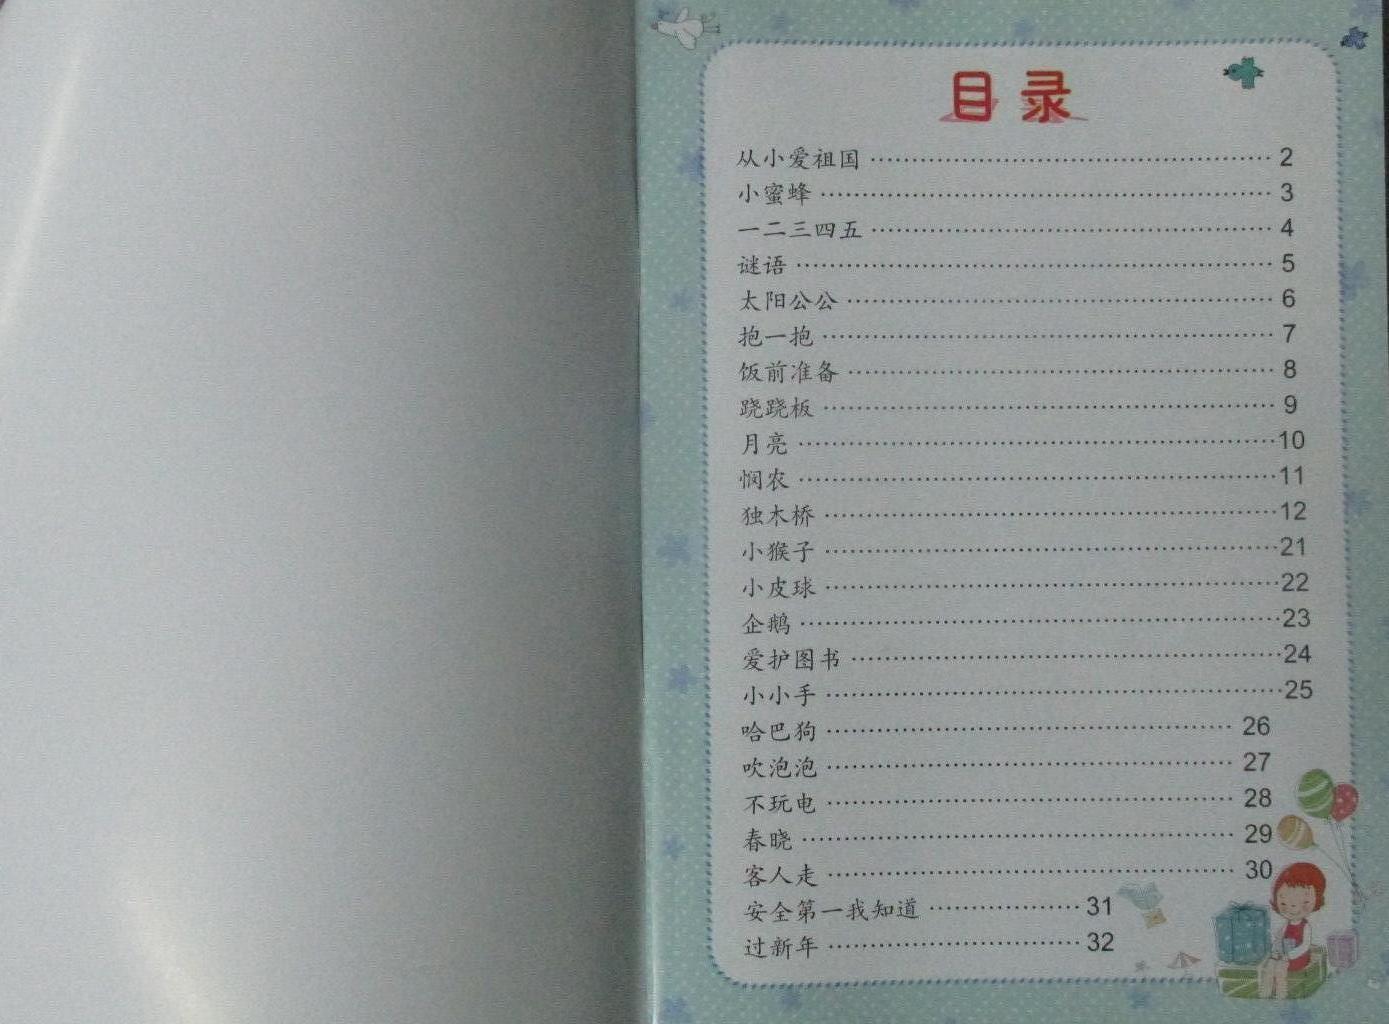 目录
从小爱祖国 2
小蜜蜂 3
一二三四五 4
谜语 5
太阳公公 6
抱一抱 7
饭前准备 8
跷跷板 9
月亮 10
悯农 11
独木桥 12
小猴子 21
小皮球 22
企鹅 23
爱护图书 24
小小手 25
哈巴狗 26
吹泡泡 27
不玩电 28
春晓 29
客人走 30
安全第一我知道 31
过新年 32